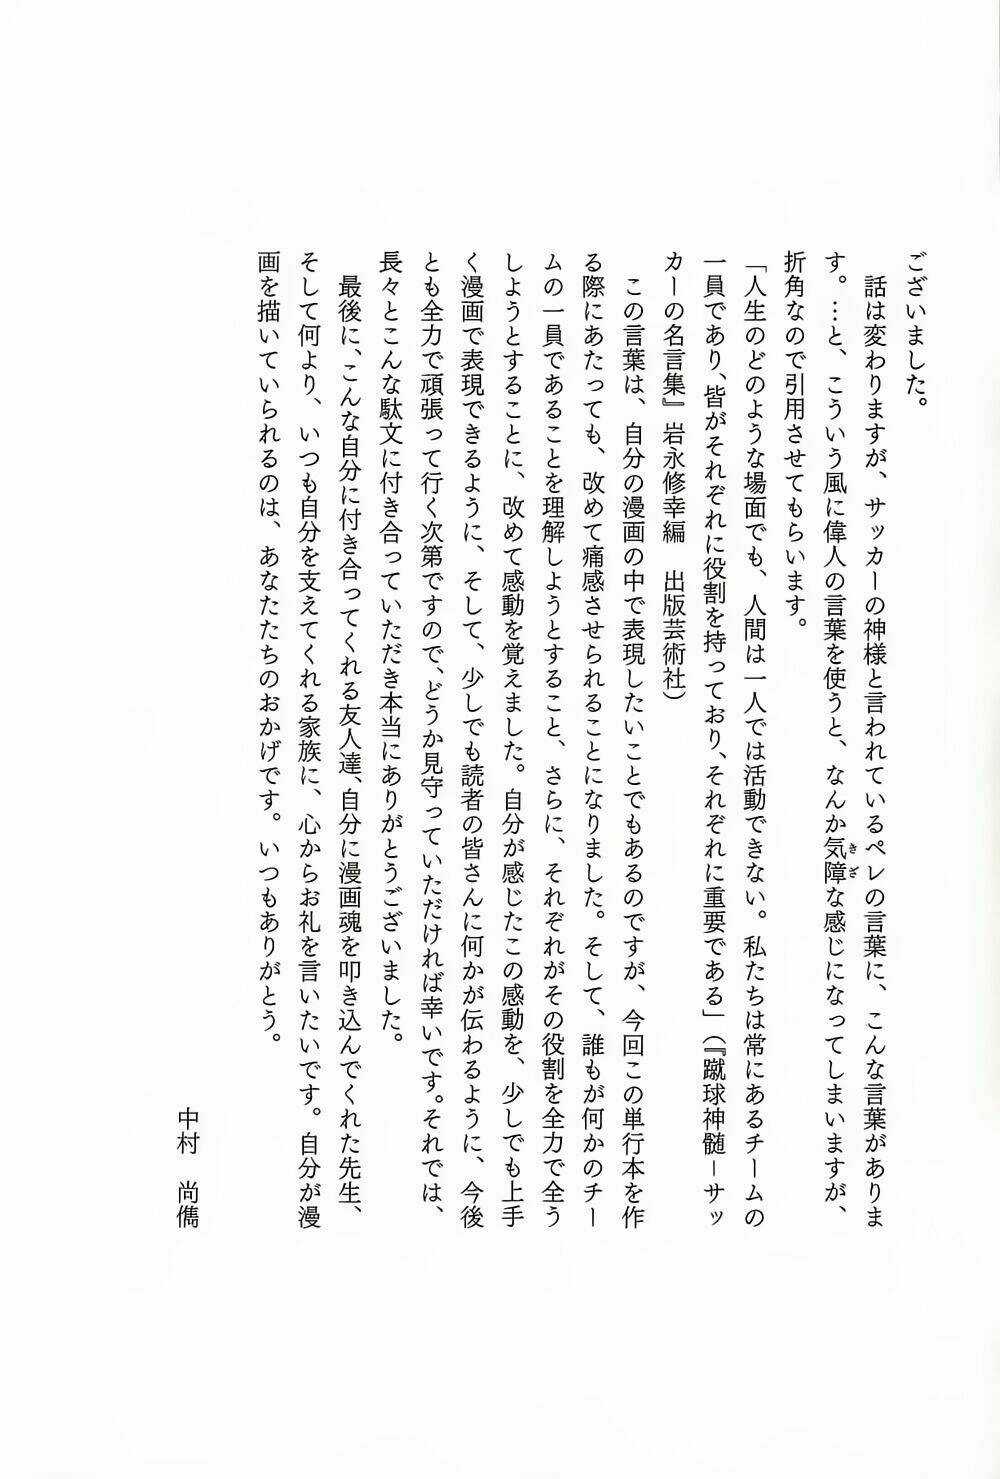 ございました。
　話は変わりますが、サッカーの神様と言われているペレの言葉に、こんな言葉がありま
す。…と、こういう風に偉人の言葉を使うと、なんか気障な感じになってしまいますが、
折角なので引用させてもらいます。
「人生のどのような場面でも、人間は一人では活動できない。私たちは常にあるチームの
一員であり、皆がそれぞれに役割を持っており、それぞれに重要である」（『蹴球神髄－サッ
カーの名言集』岩永修幸編　出版芸術社）
　この言葉は、自分の漫画の中で表現したいことでもあるのですが、今回この単行本を作
る際にあたっても、改めて痛感させられることになりました。そして、誰もが何かのチー
ムの一員であることを理解しようとすること、さらに、それぞれがその役割を全力で全う
しようとすることに、改めて感動を覚えました。自分が感じたこの感動を、少しでも上手
く漫画で表現できるように、そして、少しでも読者の皆さんに何かが伝わるように、今後
とも全力で頑張って行く次第ですので、どうか見守っていただければ幸いです。それでは、
長々とこんな駄文に付き合っていただき本当にありがとうございました。
　最後に、こんな自分に付き合ってくれる友人達、自分に漫画魂を叩き込んでくれた先生、
そして何より、いつも自分を支えてくれる家族に、心からお礼を言いたいです。自分が漫
画を描いていられるのは、あなたたちのおかげです。いつもありがとう。
中村　尚儁